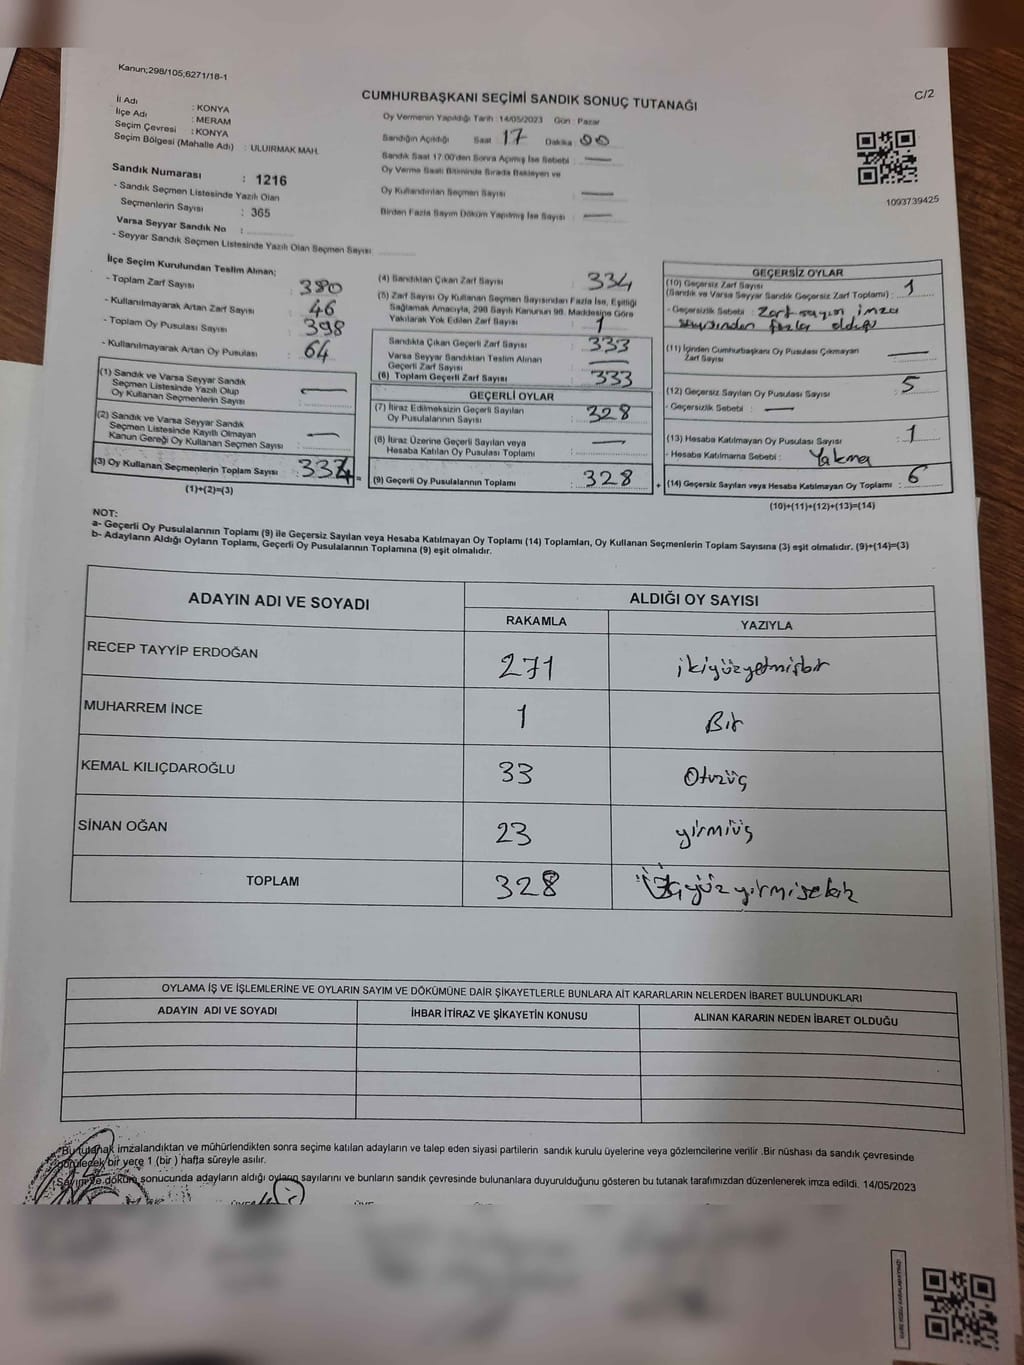 Kanun;298/105;6271/18-1
C/2
CUMHURBAŞKANI SEÇİMİ SANDIK SONUÇ TUTANAĞI
İl Adı : KONYA
İlçe Adı : MERAM
Seçim Çevresi : KONYA
Seçim Bölgesi (Mahalle Adı) : ULUIRMAK MAH.
Sandık Numarası : 1216
- Sandık Seçmen Listesinde Yazılı Olan
Seçmenlerin Sayısı : 365
Varsa Seyyar Sandık No :
- Seyyar Sandık Seçmen Listesinde Yazılı Olan Seçmen Sayısı
Oy Vermenin Yapıldığı Tarih : 14/05/2023 Gün : Pazar
Sandığın Açıldığı Saat 17 Dakika 00
Sandık Saat 17:00'den Sonra Açımış İse Sebebi : —
Oy Verme Saati Bitiminde Sırada Bekleyen ve
Oy Kullandırılan Seçmen Sayısı : —
Birden Fazla Sayım Döküm Yapılmış İse Sayısı : —
1093739425
İlçe Seçim Kurulundan Teslim Alınan;
- Toplam Zarf Sayısı : 380
- Kullanılmayarak Artan Zarf Sayısı : 46
- Toplam Oy Pusulası Sayısı : 398
- Kullanılmayarak Artan Oy Pusulası : 64
(1) Sandık ve Varsa Seyyar Sandık
Seçmen Listesinde Yazılı Olup
Oy Kullanan Seçmenlerin Sayısı : —
(2) Sandık ve Varsa Seyyar Sandık
Seçmen Listesinde Kayıtlı Olmayan
Kanun Gereği Oy Kullanan Seçmen Sayısı : —
(3) Oy Kullanan Seçmenlerin Toplam Sayısı : 334 =
(1)+(2)=(3)
(4) Sandıktan Çıkan Zarf Sayısı : 334
(5) Zarf Sayısı Oy Kullanan Seçmen Sayısından Fazla İse, Eşitliği
Sağlamak Amacıyla, 298 Sayılı Kanunun 98. Maddesine Göre
Yakılarak Yok Edilen Zarf Sayısı : 1
Sandıkta Çıkan Geçerli Zarf Sayısı : 333
Varsa Seyyar Sandıktan Teslim Alınan
Geçerli Zarf Sayısı : —
(6) Toplam Geçerli Zarf Sayısı : 333
GEÇERLİ OYLAR
(7) İtiraz Edilmeksizin Geçerli Sayılan
Oy Pusulalarının Sayısı : 328
(8) İtiraz Üzerine Geçerli Sayılan veya
Hesaba Katılan Oy Pusulası Toplamı : —
(9) Geçerli Oy Pusulalarının Toplamı : 328 +
GEÇERSİZ OYLAR
(10) Geçersiz Zarf Sayısı
(Sandık ve Varsa Seyyar Sandık Geçersiz Zarf Toplamı) : 1
- Geçersizlik Sebebi : Zarf sayısı imza
sayısından fazla olduğu
(11) İçinden Cumhurbaşkanı Oy Pusulası Çıkmayan
Zarf Sayısı : —
(12) Geçersiz Sayılan Oy Pusulası Sayısı : 5
- Geçersizlik Sebebi : —
(13) Hesaba Katılmayan Oy Pusulası Sayısı : 1
- Hesaba Katılmama Sebebi : Yakma
(14) Geçersiz Sayılan veya Hesaba Katılmayan Oy Toplamı : 6
(10)+(11)+(12)+(13)=(14)
NOT:
a- Geçerli Oy Pusulalarının Toplamı (9) ile Geçersiz Sayılan veya Hesaba Katılmayan Oy Toplamı (14) Toplamları, Oy Kullanan Seçmenlerin Toplam Sayısına (3) eşit olmalıdır. (9)+(14)=(3)
b- Adayların Aldığı Oyların Toplamı, Geçerli Oy Pusulalarının Toplamına (9) eşit olmalıdır.
ADAYIN ADI VE SOYADI ALDIĞI OY SAYISI
RAKAMLA YAZIYLA
RECEP TAYYİP ERDOĞAN 271 ikiyüzyetmişbir
MUHARREM İNCE 1 Bir
KEMAL KILIÇDAROĞLU 33 Otuzüç
SİNAN OĞAN 23 yirmiüç
TOPLAM 328 Üçyüzyirmisekiz
OYLAMA İŞ VE İŞLEMLERİNE VE OYLARIN SAYIM VE DÖKÜMÜNE DAİR ŞİKAYETLERLE BUNLARA AİT KARARLARIN NELERDEN İBARET BULUNDUKLARI
ADAYIN ADI VE SOYADI İHBAR İTİRAZ VE ŞİKAYETİN KONUSU ALINAN KARARIN NEDEN İBARET OLDUĞU
Bu tutanak imzalandıktan ve mühürlendikten sonra seçime katılan adayların ve talep eden siyasi partilerin sandık kurulu üyelerine veya gözlemcilerine verilir .Bir nüshası da sandık çevresinde
görülecek bir yere 1 (bir ) hafta süreyle asılır.
Sayım ve döküm sonucunda adayların aldığı oyların sayılarını ve bunların sandık çevresinde bulunanlara duyurulduğunu gösteren bu tutanak tarafımızdan düzenlenerek imza edildi. 14/05/2023